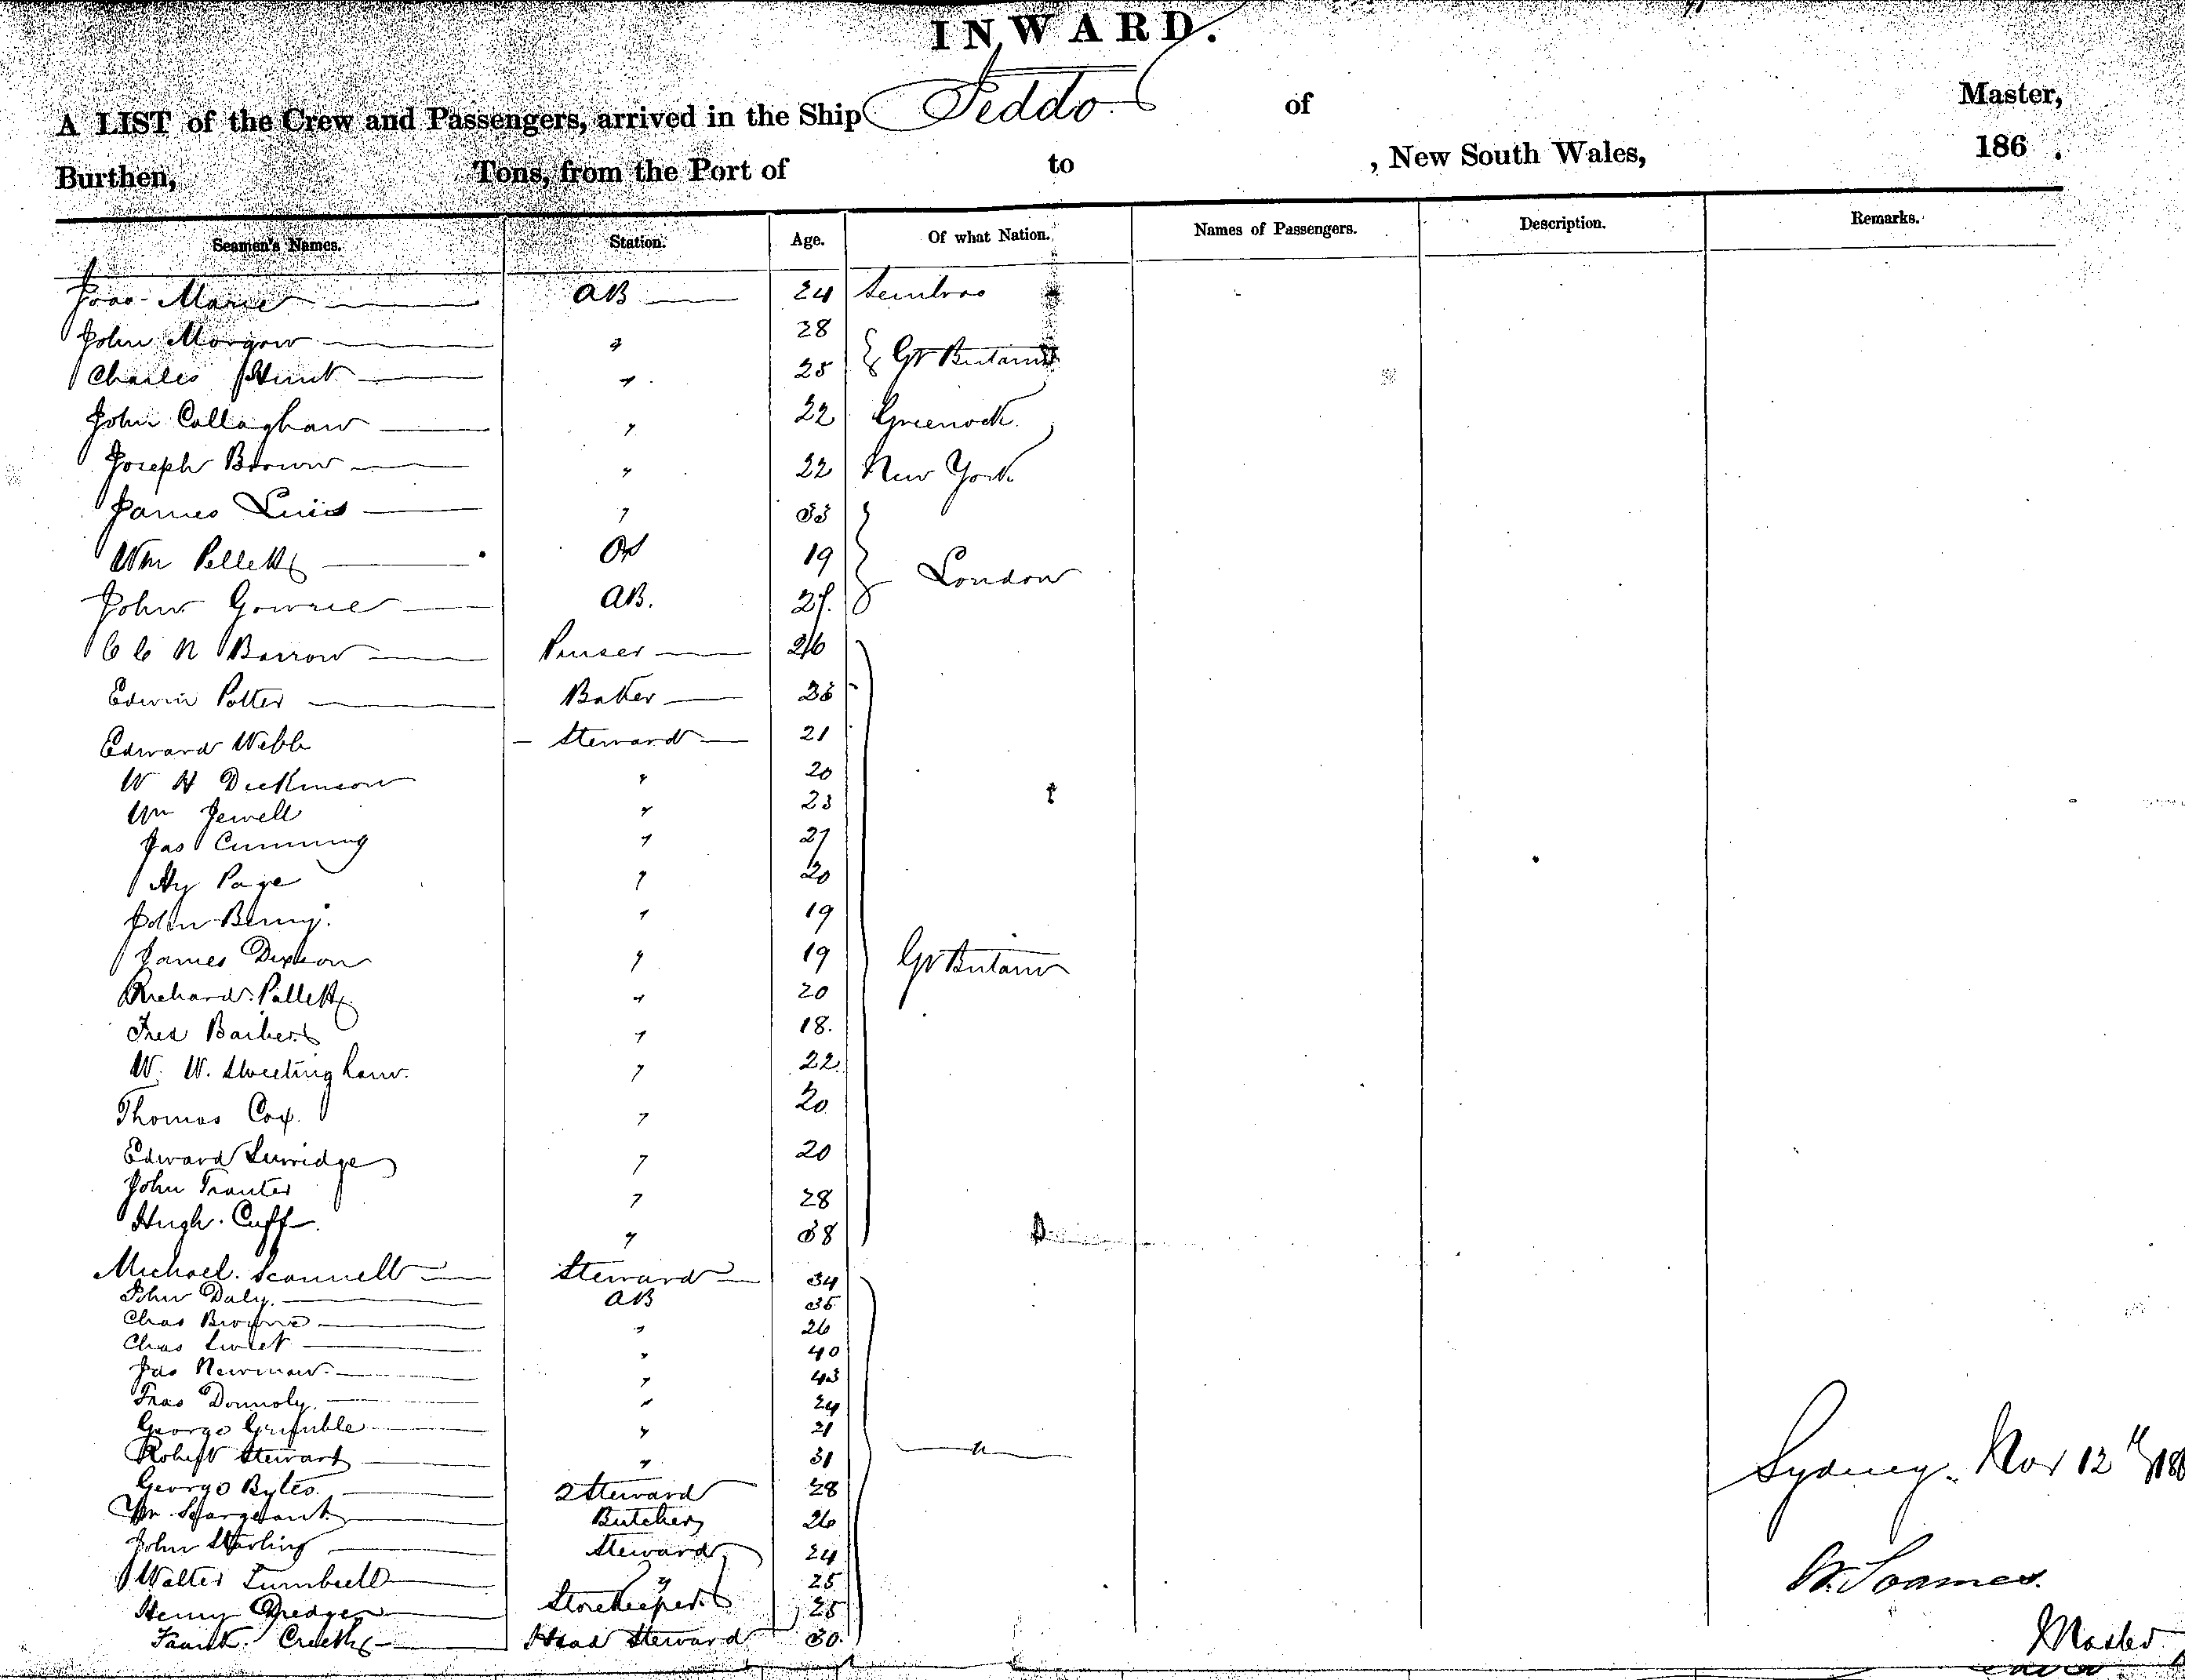 INWARD.
A LIST of the Crew and Passengers, arrived in the Ship Jeddo of Master,
Burthen, Tons, from the Port of to , New South Wales, 186 .
Seamen's Names. Station. Age. Of what Nation. Names of Passengers. Description. Remarks.
Marie AB 24
John Morgan " 28 Gt Britain
Charles Hunt " 25
John Callaghan " 22 Greenock
Joseph Brown " 22 New York
James " 33
Wm Pellett OS 19 London
John Gowrie AB. 27.
C C N Barrow Purser 26
Edwin Potter Baker
Edward Webb Steward 21
W H Dickinson " 20
Wm Jewell " 23
Jas Cumming " 27
Hy Page " 20
John Berry. " 19
James Dixson " 19 Gt Britain
Richard Pallett " 20
Fred Barber " 18.
W. W. Sweetingham. " 22
Thomas Cox. " 20
Edward Surridge " 20
John Tranter " 28
Hugh Cuff " 38
Michael Scannell Steward 34
John Daly. AB 35
Chas Browne " 26
Chas Sweet " 40
Jas Newman. " 43
Fras Donnoly. " 24
George Grimble " 21
Robert Stewart " 31 "
George Byles. 2 Steward 28
Wm Seargeant Butcher 26
John Starling Steward 24
Walter Turnbull " 25
Henry Dredge Storekeeper 25
Frank Head Steward 30.
Sydney. Nov 12th 186
W. Soames.
Master